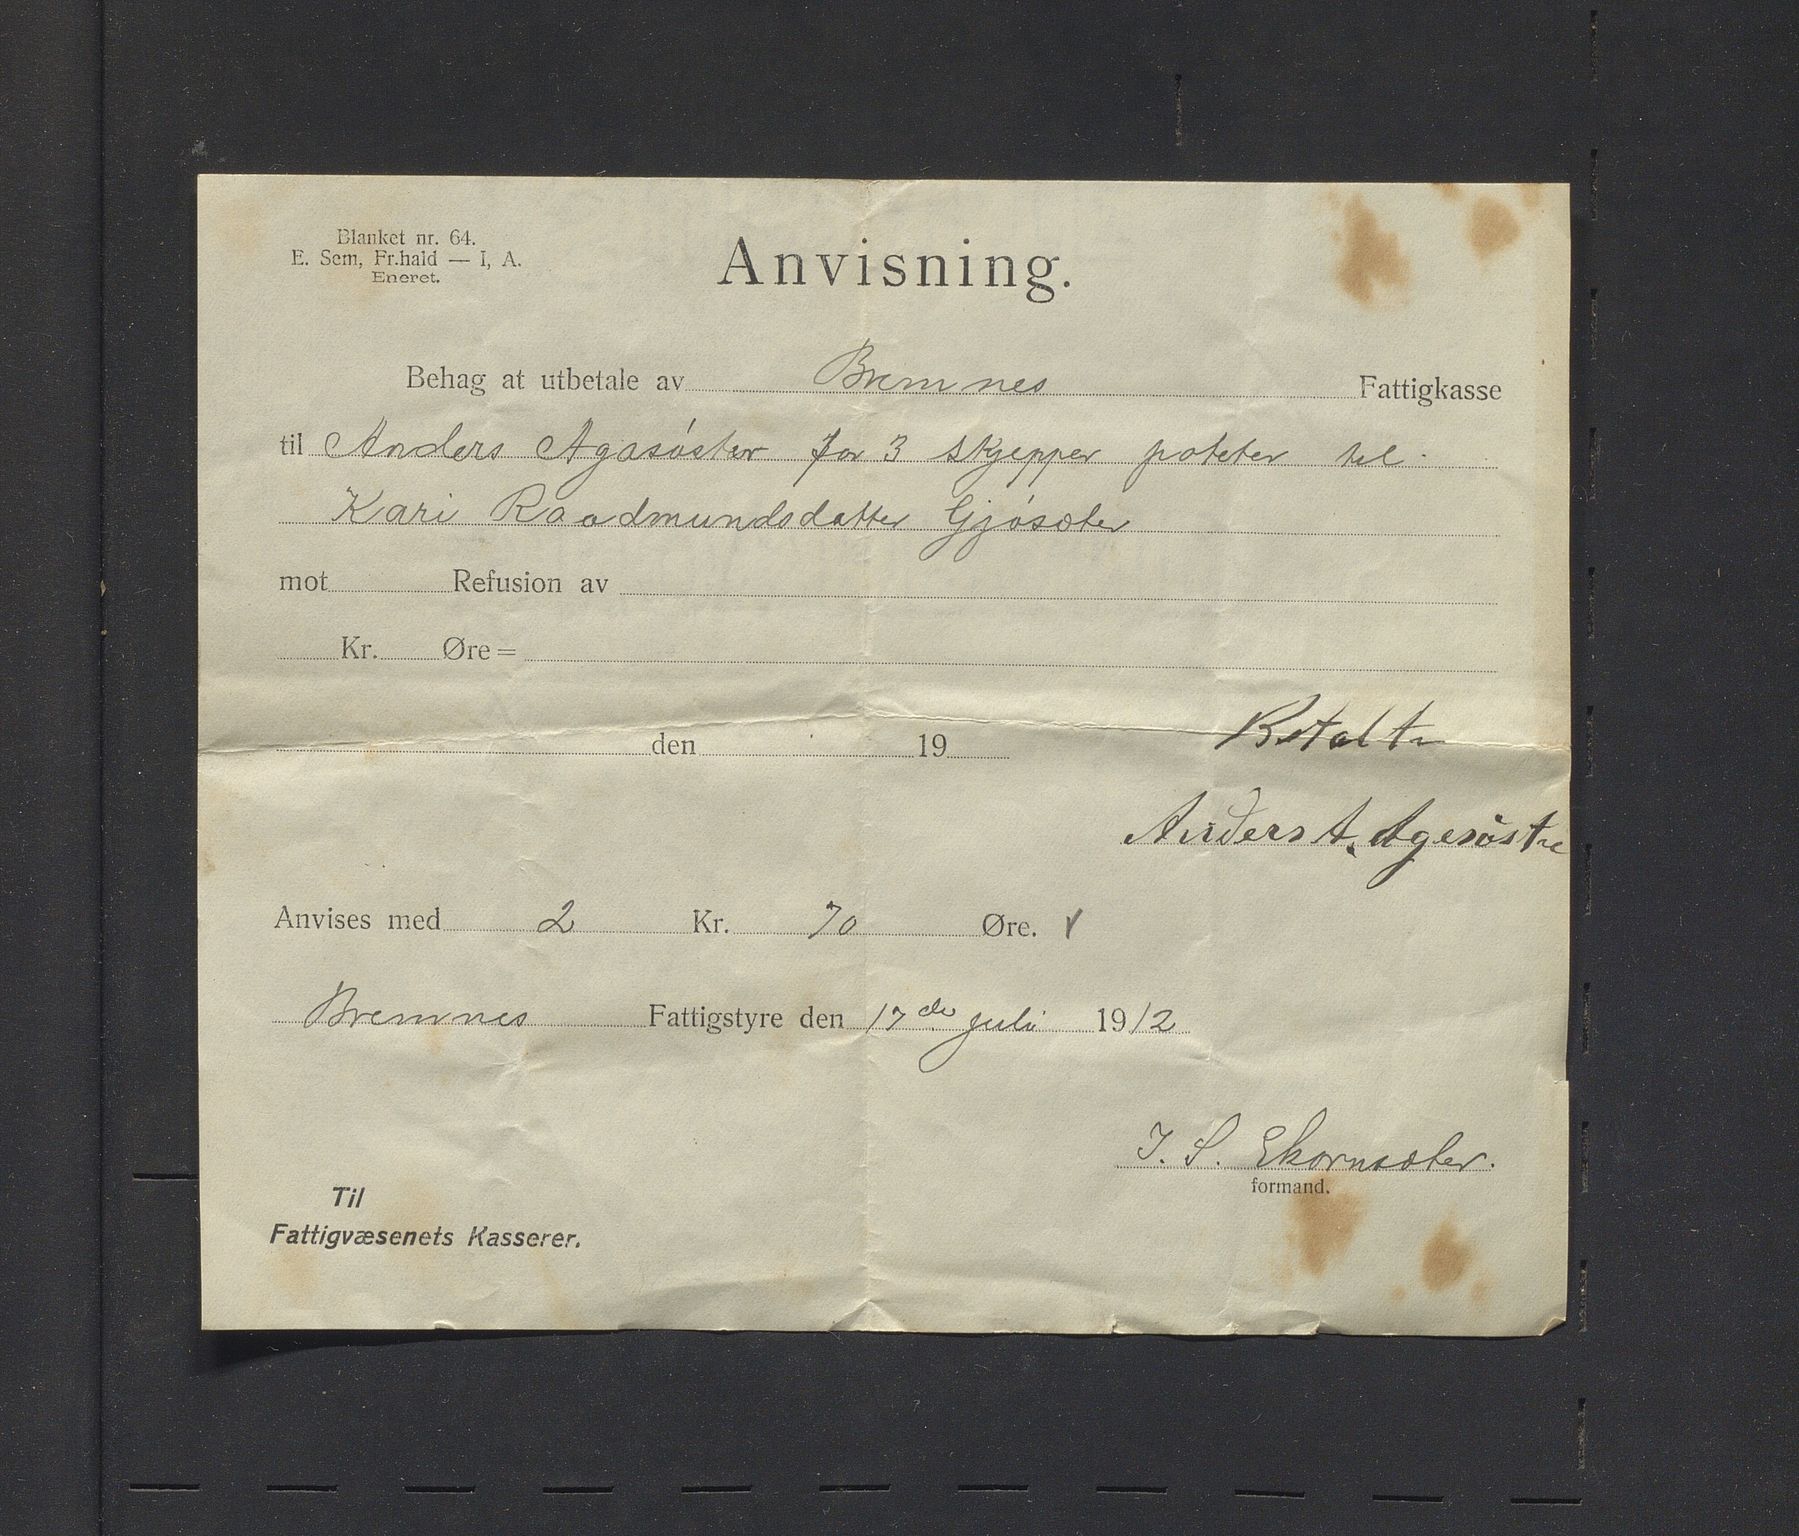 Blanket nr. 64.
E. Sem, Fr.hald — I, A.
Eneret.
Anvisning.
Behag at utbetale av Bremnes Fattigkasse
til Anders Agasøster for 3 skjepper poteter til
Kari Raadmundsdatter Gjøsæter
mot Refusion av
Kr. Øre =
den 19
Betalt
Anders A. Agesøstre
Anvises med 2 Kr. 70 Øre.
Bremnes Fattigstyre den 17de juli 1912
I. S. Ekornsæter.
formand.
Til
Fattigvæsenets Kasserer.